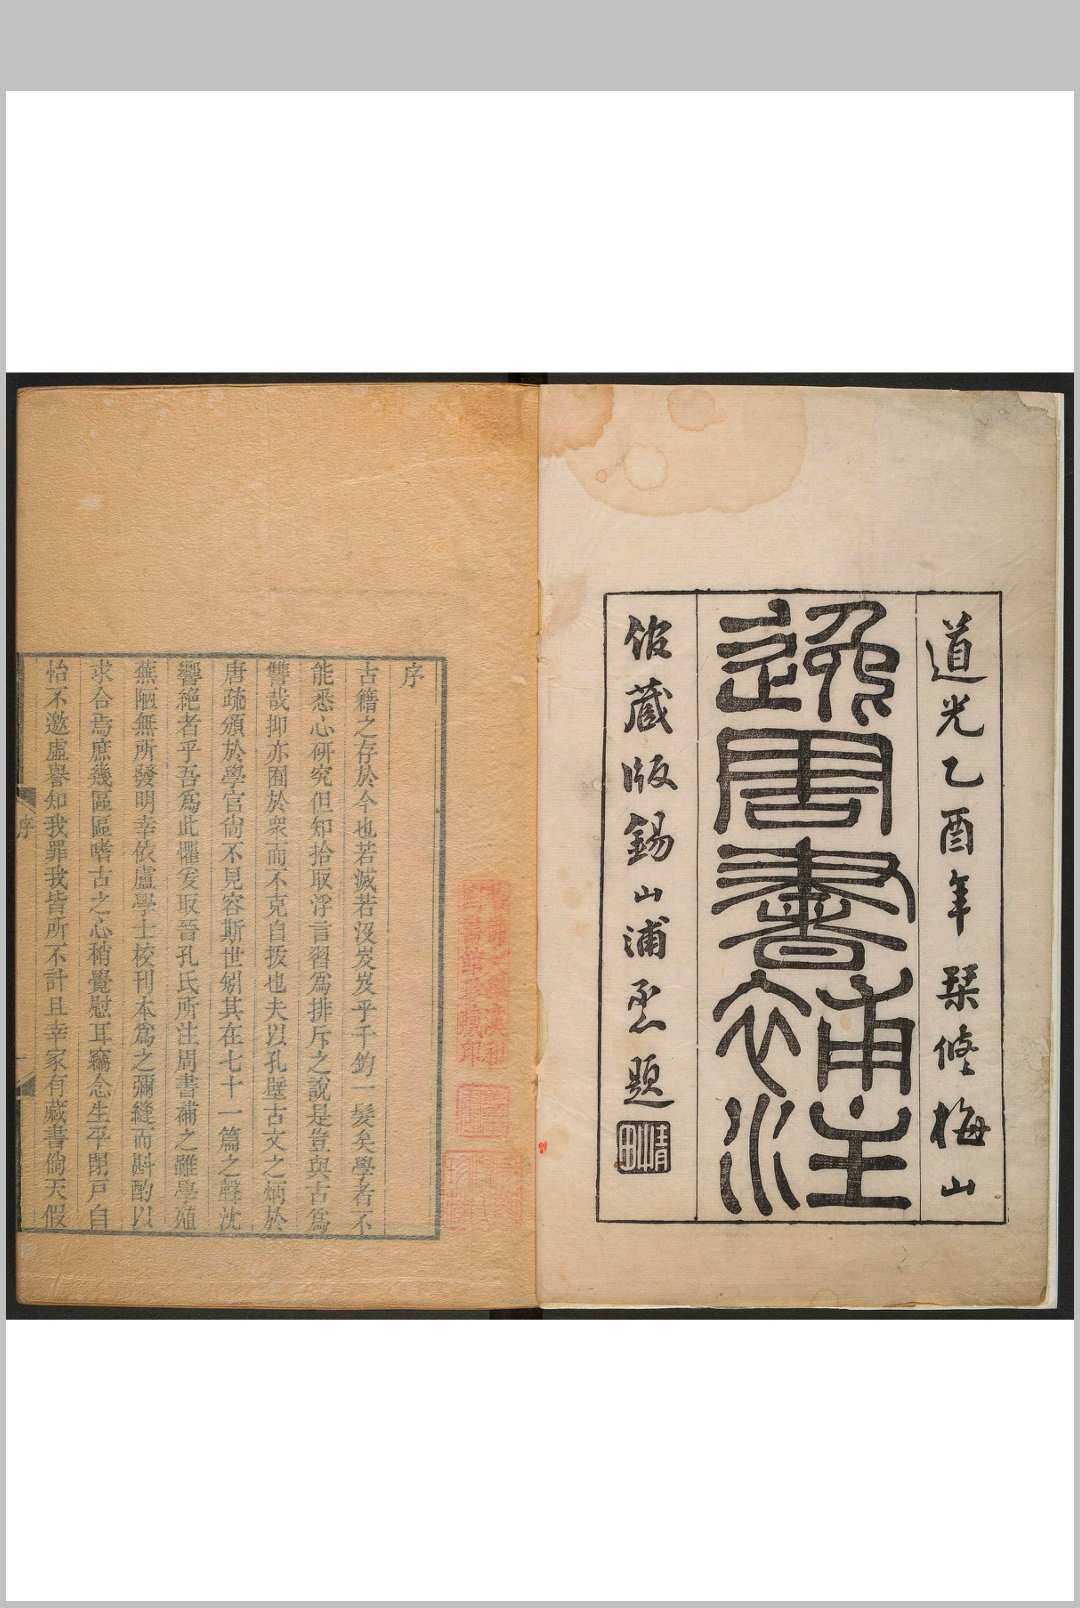 道光乙酉年栞修梅山
逸周書補注
館藏版錫山浦悫題
序
古籍之存於今也若滅若沒岌岌乎千鈞一髮矣學者不
能悉心硏究但知拾取浮言習爲排斥之說是豈與古爲
讐哉抑亦囿於衆而不克自拔也夫以孔壁古文之炳於
唐疏頒於學官尙不見容斯世矧其在七十一篇之聲沈
響絕者乎吾爲此懼爰取晉孔氏所注周書補之雖學殖
蕪陋無所發明幸依盧學士校刊本爲之彌縫而斟酌以
求合焉庶幾區區嗜古之心稍覺慰耳竊念生平閉戸自
怡不邀虛譽知我罪我皆所不計且幸家有藏書倘天假
序
一